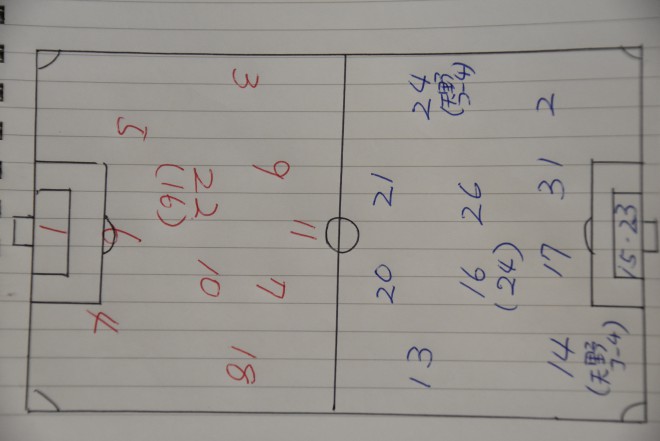 3
5
9
22
(16)
11
1
6
10
7
4
18
24
(天野
コーチ)
2
21
26
31
15・23
20
16
(24)
17
13
14
(天野
コーチ)